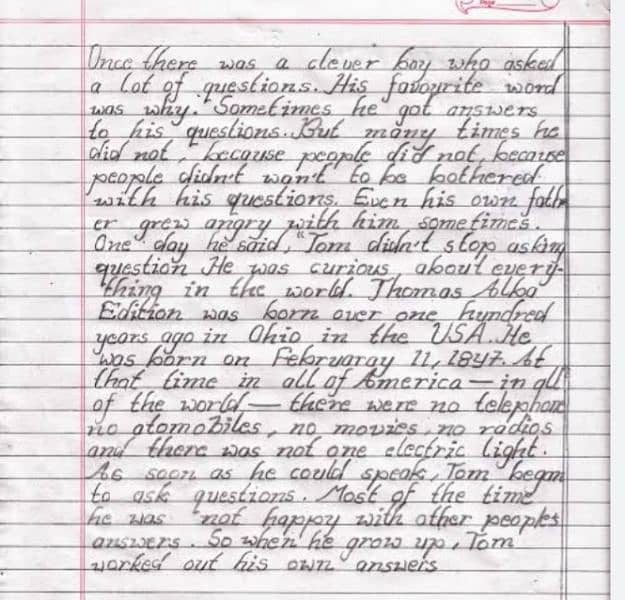 Once there was a clever boy who asked
a lot of questions. His favourite word
was why. Sometimes he got answers
to his questions. But many times he
did not, because people did not, because
people didn't won't to be bothered
with his questions. Even his own fath
er grew angry with him sometimes.
One day he said, "Tom didn't stop asking
question He was curious about every-
thing in the world. Thomas Alba
Edition was born over one hundred
years ago in Ohio in the USA. He
was born on Februaray 11, 1847. At
that time in all of America — in all
of the world — there were no telephone
no atomobiles, no movies, no radios
and there was not one electric light.
As soon as he could speak, Tom began
to ask questions. Most of the time
he was not happy with other peoples
answers. So when he grow up, Tom
worked out his own answers